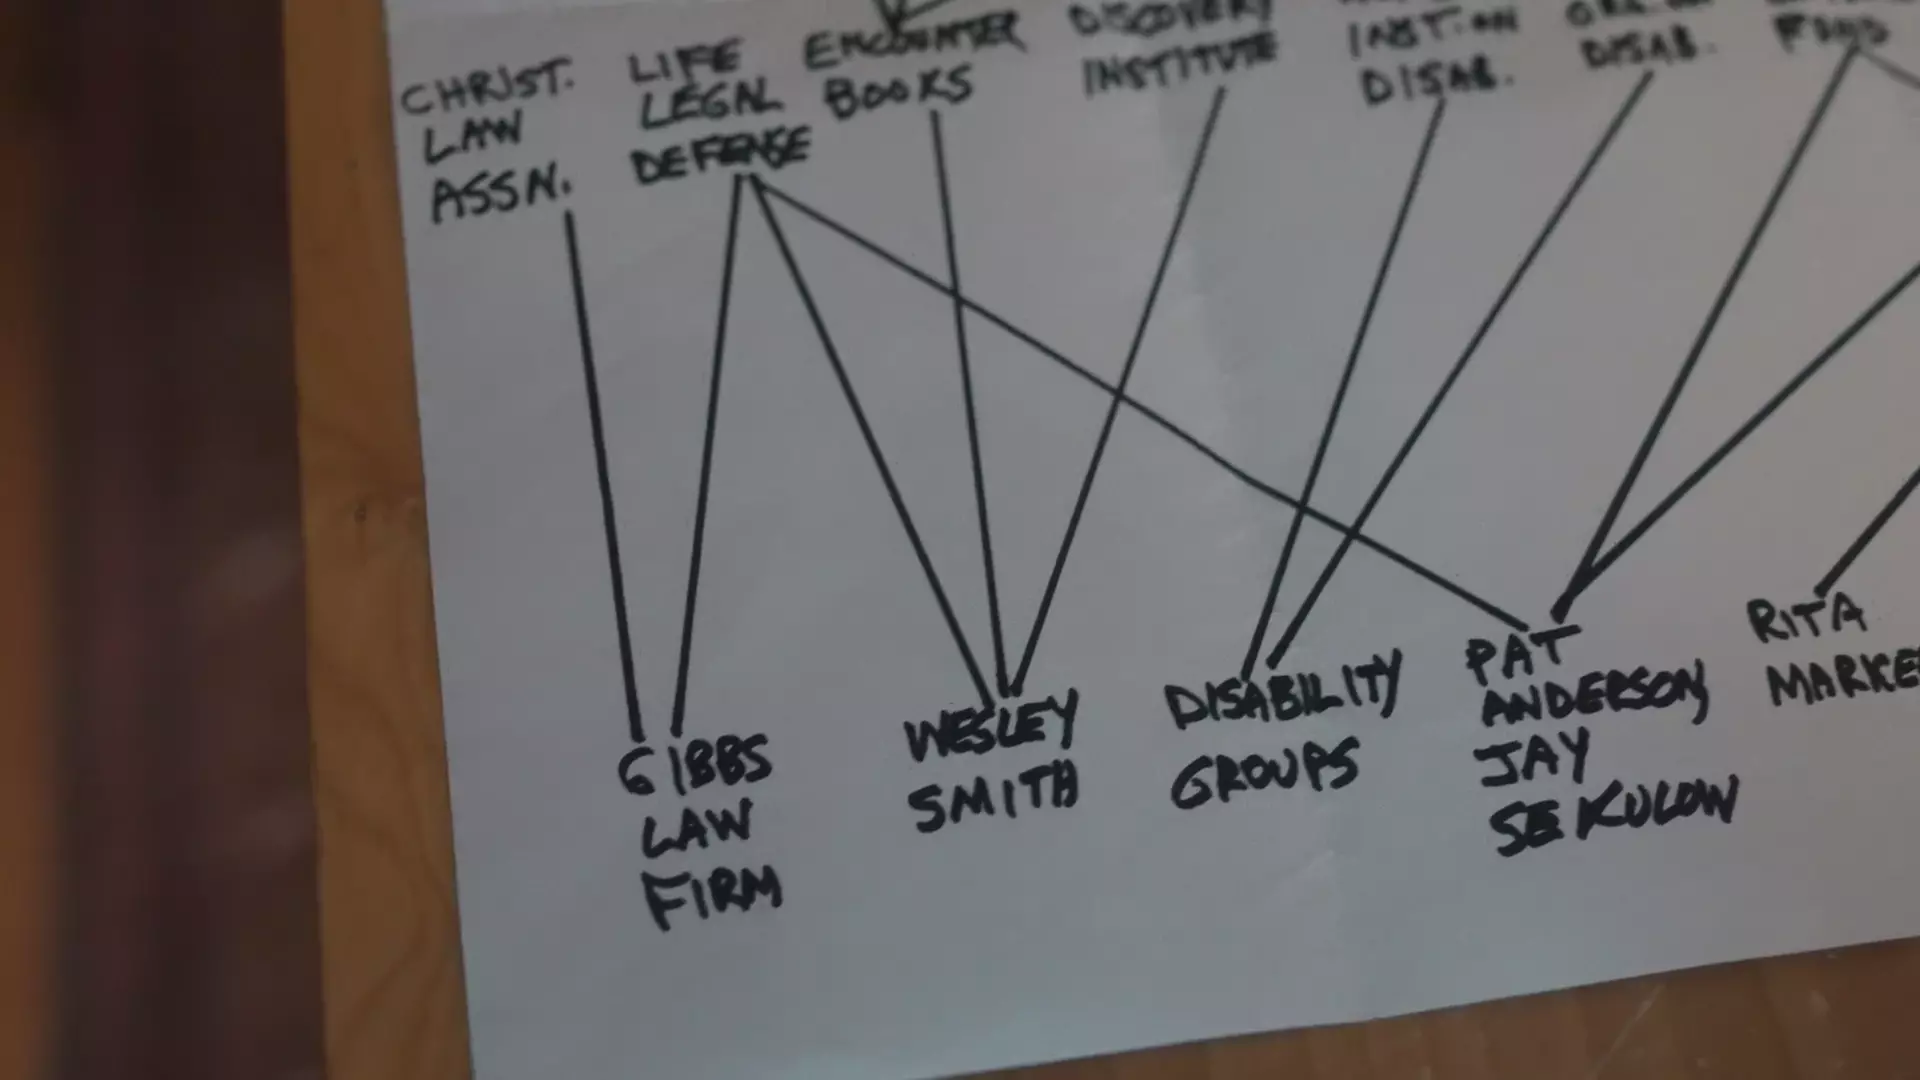 CHRIST.
LAW
ASSN.
LIFE
LEGAL
DEFENSE
ENCOUNTER
BOOKS
DISCOVERY
INSTITUTE
DISAB.
DISAB.
FUND
GIBBS
LAW
FIRM
WESLEY
SMITH
DISABILITY
GROUPS
PAT
ANDERSON,
JAY
SEKULOW
RITA
MARKE